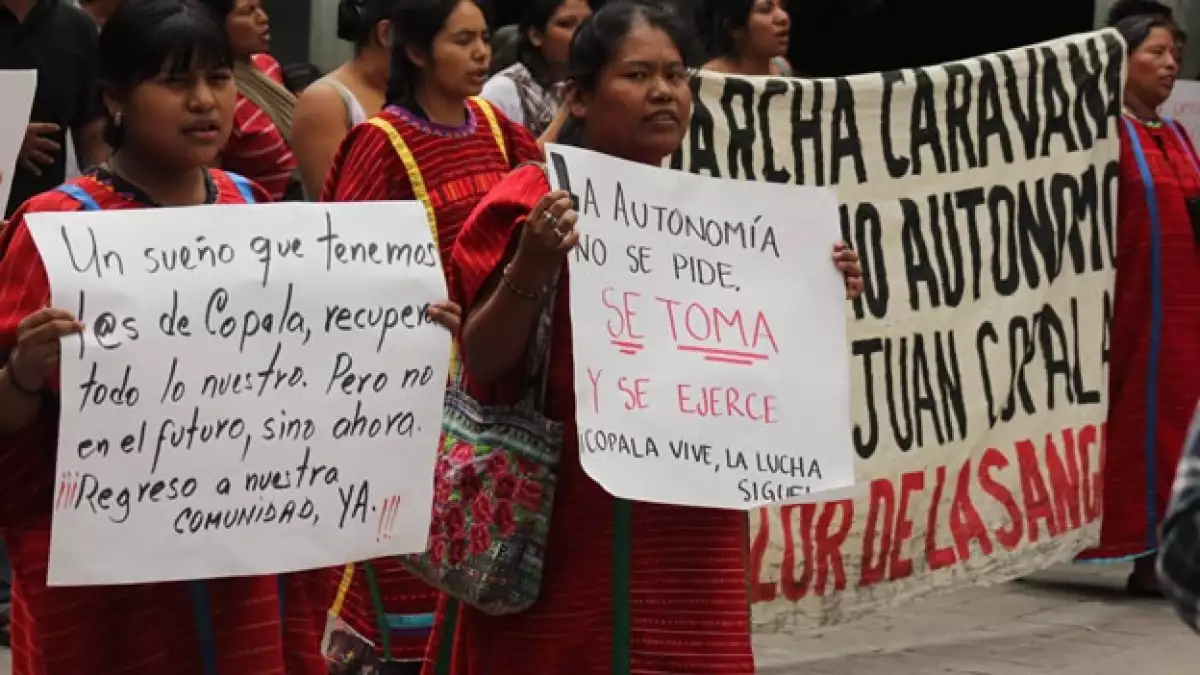 Un sueño que tenemos
l@s de Copala, recuperar
todo lo nuestro. Pero no
en el futuro, sino ahora.
¡¡¡Regreso a nuestra
COMUNIDAD, YA.!!!
LA AUTONOMÍA
NO SE PIDE,
SE TOMA
Y SE EJERCE
¡COPALA VIVE, LA LUCHA
SIGUE!
MARCHA CARAVANA
AUTONOMO
JUAN COPALA
COLOR DE LA SANG